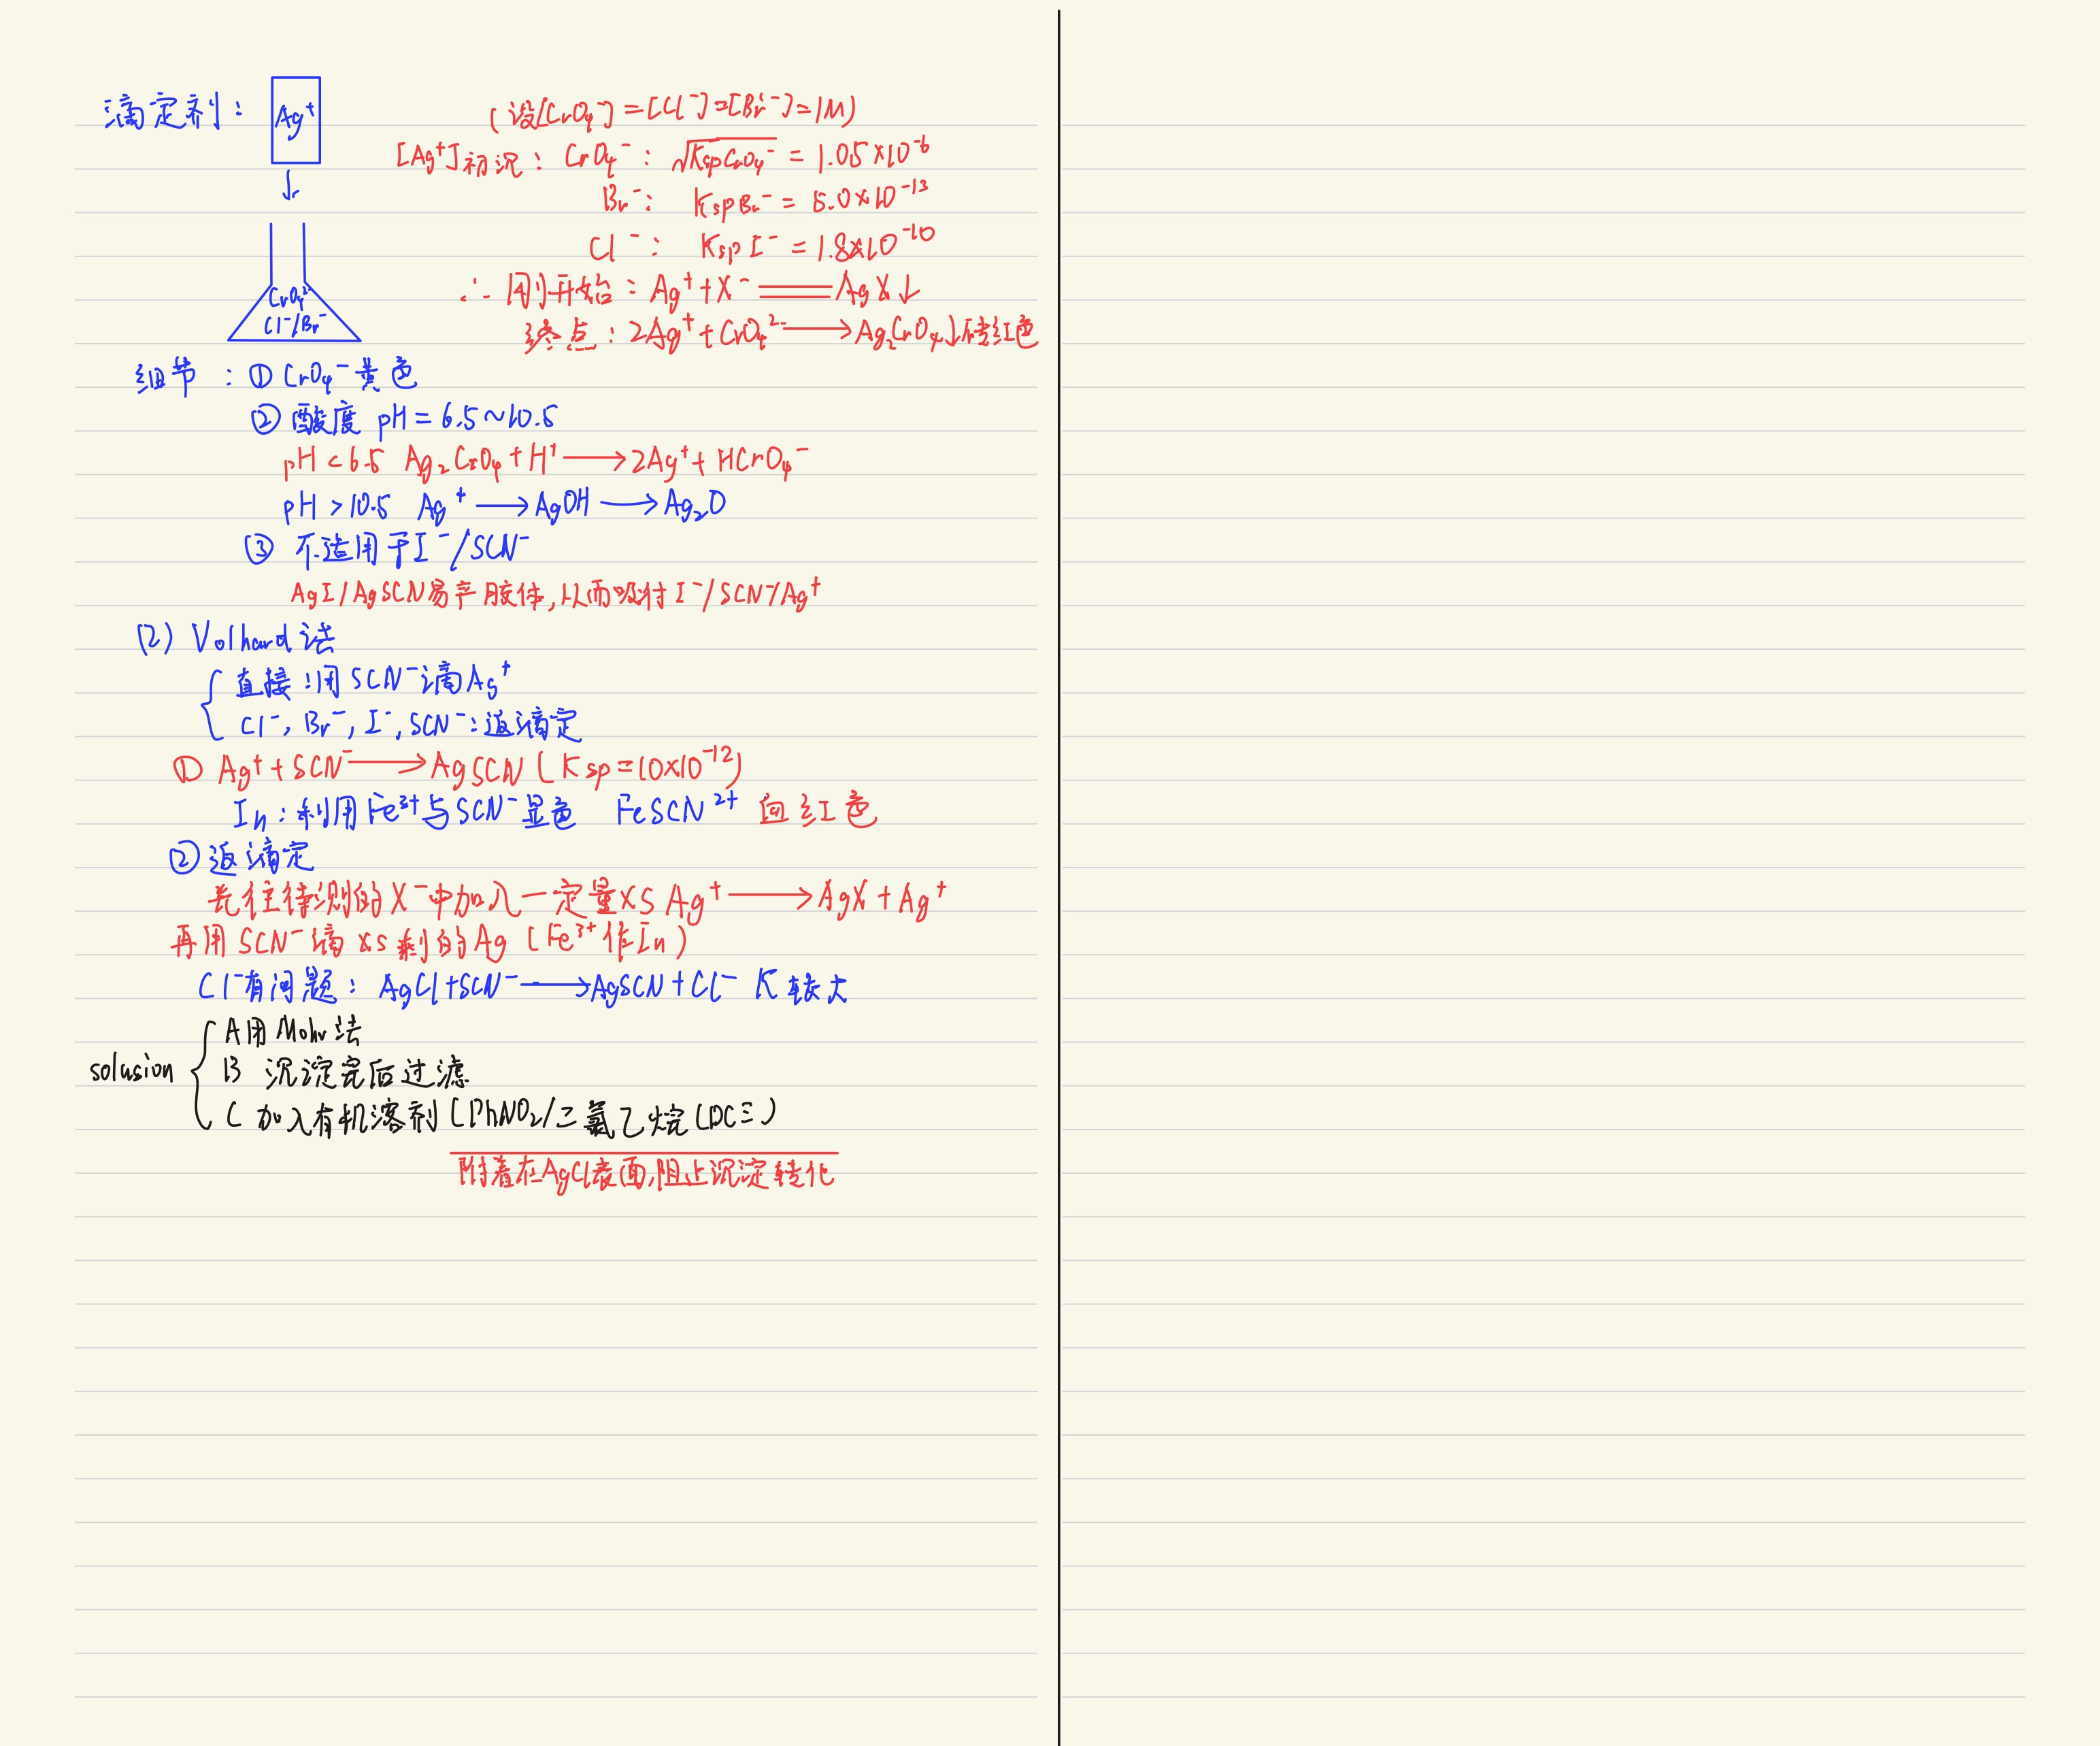 滴定剂：
Ag⁺
(设[CrO₄⁻]=[Cl⁻]=[Br⁻]=1M)
[Ag⁺]初沉： CrO₄⁻： √KspCrO₄⁻ = 1.05×10⁻⁶
Br⁻： KspBr⁻ = 5.0×10⁻¹³
Cl⁻： KspI⁻ = 1.8×10⁻¹⁰
CrO₄²⁻
Cl⁻/Br⁻
∴ 刚开始：Ag⁺+X⁻ ══ AgX↓
终点：2Ag⁺+CrO₄²⁻ → Ag₂CrO₄↓砖红色
细节：① CrO₄⁻黄色
② 酸度 pH=6.5~10.5
pH<6.5 Ag₂CrO₄+H⁺ → 2Ag⁺+HCrO₄⁻
pH>10.5 Ag⁺ → AgOH → Ag₂O
③ 不适用于I⁻/SCN⁻
AgI/AgSCN易产胶体,从而吸付I⁻/SCN⁻/Ag⁺
(2) Volhard法
直接:用SCN⁻滴Ag⁺
Cl⁻, Br⁻, I⁻, SCN⁻:返滴定
① Ag⁺+SCN⁻ → AgSCN (Ksp=10×10⁻¹²)
In:利用Fe³⁺与SCN⁻显色 FeSCN²⁺ 血红色
②返滴定
先往待测的X⁻中加入一定量xs Ag⁺ → AgX+Ag⁺
再用SCN⁻滴xs剩的Ag (Fe³⁺作In)
Cl⁻有问题：AgCl+SCN⁻ → AgSCN+Cl⁻ K较大
A用Mohr法
solusion
B 沉淀完后过滤
C 加入有机溶剂(PhNO₂/二氯乙烷(DCE)
附着在AgCl表面,阻止沉淀转化